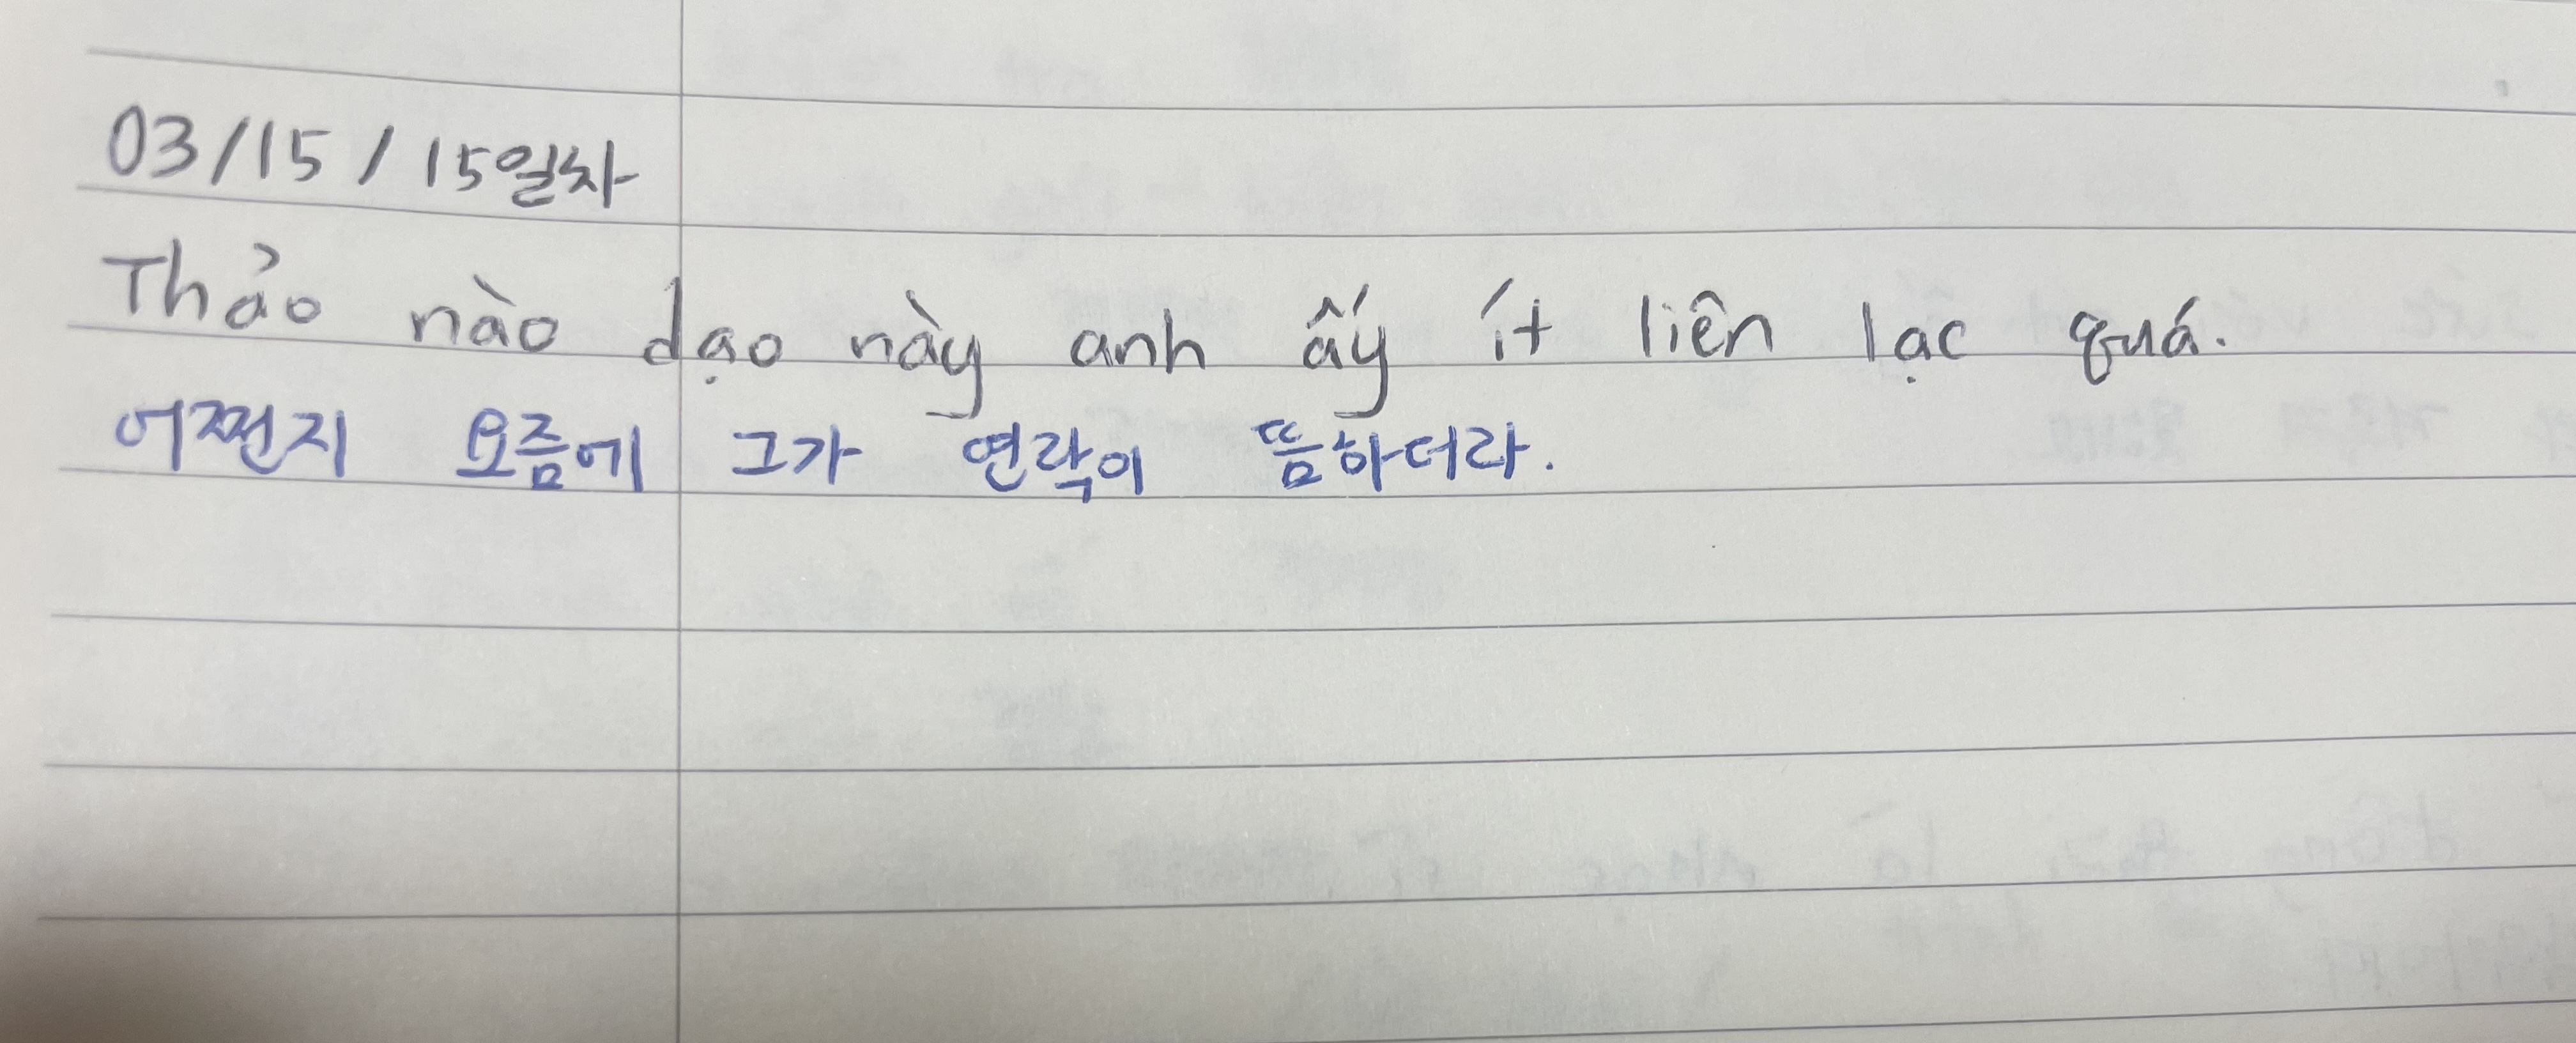 03/15/15일차
Thảo nào dạo này anh ấy ít liên lạc quá.
어쩐지 요즘에 그가 연락이 뜸하더라.